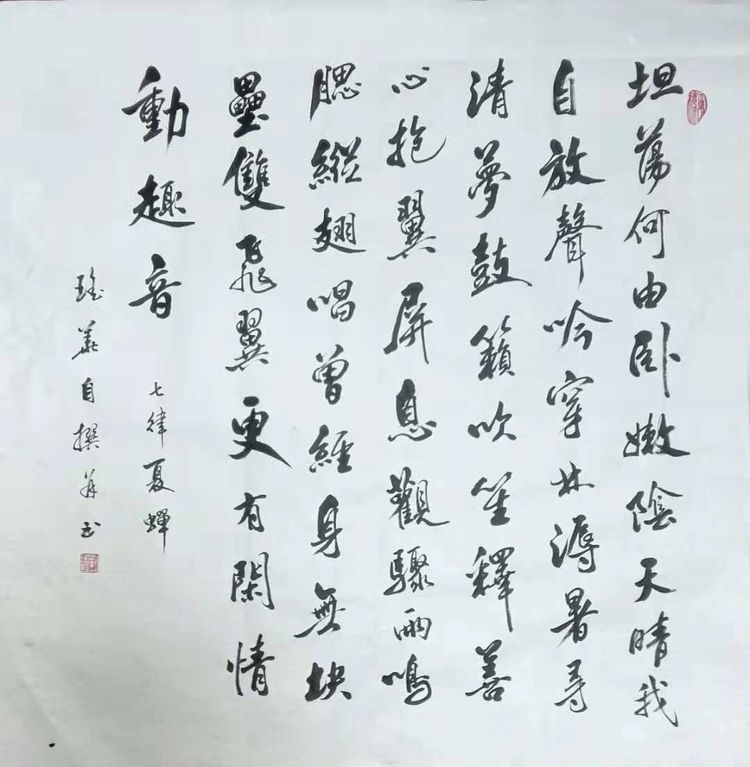 坦蕩何由卧嫩陰天晴我
自放聲吟穿林溽暑尋
清夢鼓籟吹笙釋善
心抱翼屏息觀驟雨鳴
腮縱翅唱曾經身無塊
壘雙飛翼更有閑情
動趣音
七律夏蟬
瑤華自撰并書